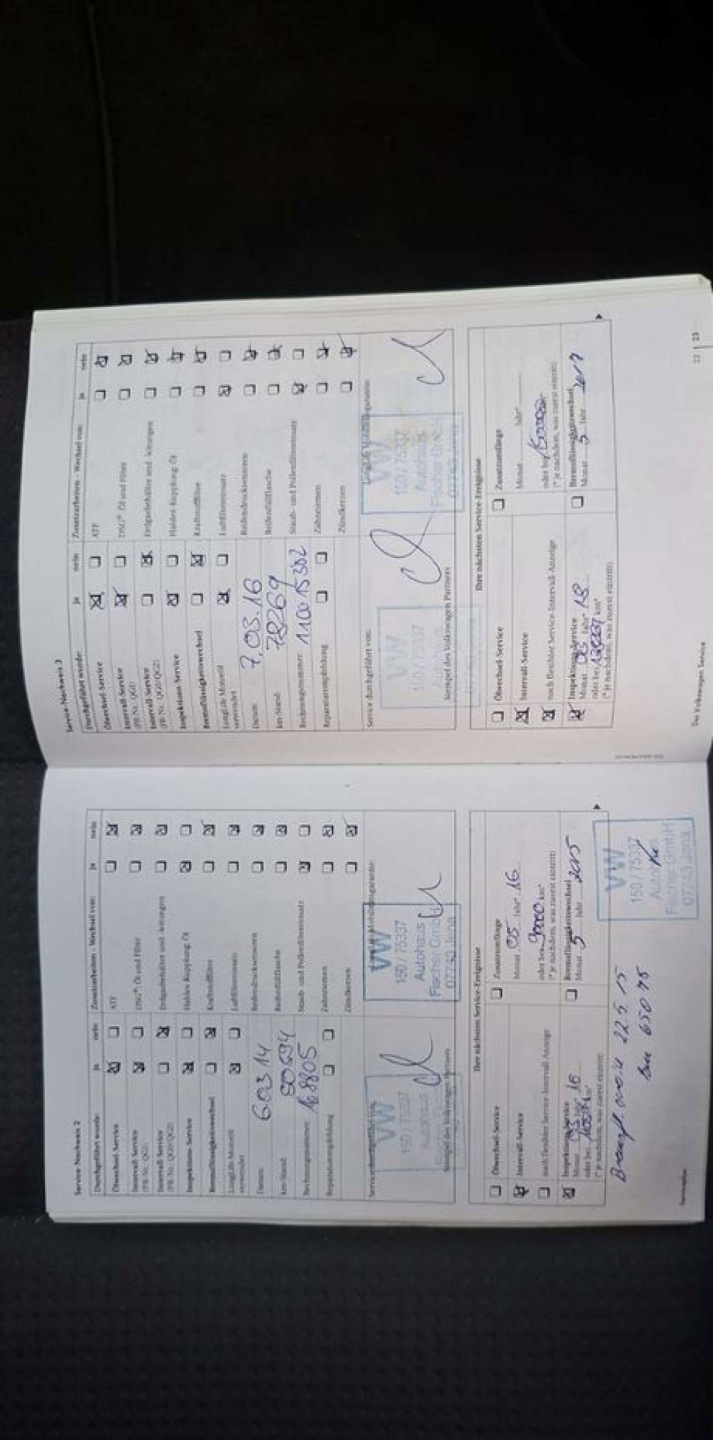 Service-Nachweis 2
Durchgeführt wurde: ja nein
Ölwechsel-Service
Intervall-Service
(PR-Nr. QG1)
Intervall-Service
(PR-Nr. QG0/QG2)
Inspektions-Service
Bremsflüssigkeitswechsel
LongLife Motoröl
verwendet
Datum: 6.03.14
km-Stand: 50694
Rechnungsnummer: 168805
Reparaturempfehlung
Zusatzarbeiten - Wechsel von: ja nein
ATF
DSG® Öl und Filter
Erdgasbehälter und -leitungen
Haldex-Kupplung: Öl
Kraftstofffilter
Luftfiltereinsatz
Reifendrucksensoren
Reifenfüllflasche
Staub- und Pollenfiltereinsatz
Zahnriemen
Zündkerzen
VW
150 / 75337
Autohaus
Stempel des Volkswagen Partners
VW
150 / 75337
Autohaus
Fischer GmbH
07743 Jena
Ihre nächsten Service-Ereignisse
Ölwechsel-Service
Intervall-Service
nach flexibler Service-Intervall-Anzeige
Inspektions-Service
Monat Jahr* 16
oder bei km*
(* je nachdem, was zuerst eintritt)
Zusatzumfänge
Monat 05 Jahr* 16
oder bei 90000 km*
(* je nachdem, was zuerst eintritt)
Bremsflüssigkeitswechsel
Monat 5 Jahr 2015
22.5.15
65075
VW
150 / 75337
Autohaus
Fischer GmbH
07743 Jena
Serviceplan
Service-Nachweis 3
Durchgeführt wurde: ja nein
Ölwechsel-Service
Intervall-Service
(PR-Nr. QG1)
Intervall-Service
(PR-Nr. QG0/QG2)
Inspektions-Service
Bremsflüssigkeitswechsel
LongLife Motoröl
verwendet
Datum: 7.03.16
km-Stand: 78269
Rechnungsnummer: 110015382
Reparaturempfehlung
Zusatzarbeiten - Wechsel von: ja nein
ATF
DSG® Öl und Filter
Erdgasbehälter und -leitungen
Haldex-Kupplung: Öl
Kraftstofffilter
Luftfiltereinsatz
Reifendrucksensoren
Reifenfüllflasche
Staub- und Pollenfiltereinsatz
Zahnriemen
Zündkerzen
Service durchgeführt von:
VW
150 / 75337
Stempel des Volkswagen Partners
VW
150 / 75337
Autohaus
Fischer GmbH
07743 Jena
Ihre nächsten Service-Ereignisse
Ölwechsel-Service
Intervall-Service
nach flexibler Service-Intervall-Anzeige
Inspektions-Service
Monat Jahr* 18
oder bei km*
(* je nachdem, was zuerst eintritt)
Zusatzumfänge
Monat Jahr*
oder bei km*
(* je nachdem, was zuerst eintritt)
Bremsflüssigkeitswechsel
Monat 5 Jahr 2017
Der Volkswagen Service
22 | 23